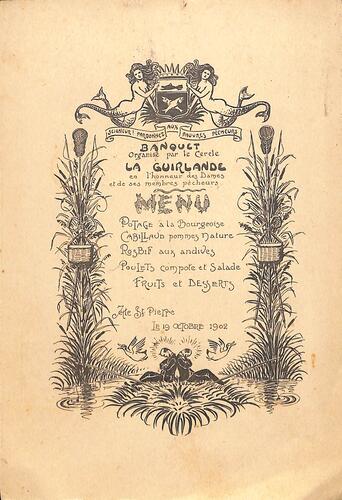 SEIGNEUR! PARDONNEZ AUX PAUVRES PÉCHEURS
BANQUET
Organisé par le Cercle
LA GUIRLANDE
en l'honneur des Dames
et de ses membres pêcheurs
MENU
POTAGE à la Bourgeoise
CABILLAUD pommes nature
ROSBIF aux andives
POULETS compote et Salade
FRUITS et DESSERTS
St Pierre
LE 19 OCTOBRE 1902